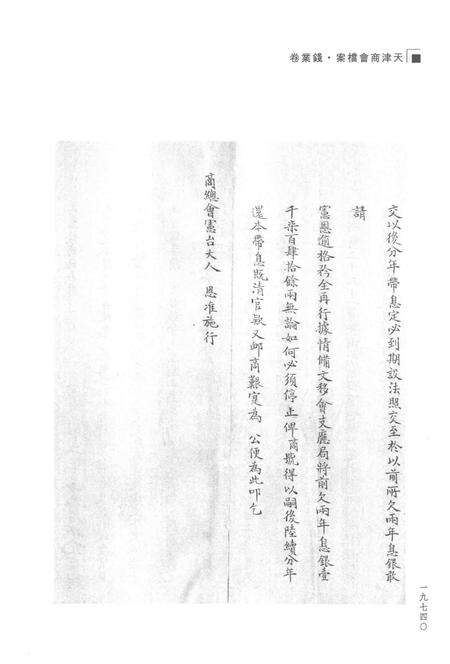 天津商會檔案·錢業卷
交以後分年帶息定必到期設法照交至於以前所欠兩年息銀敢
請
憲恩逾格矜全再行據情備文移會支應局將前欠兩年息銀壹
千柒百肆拾餘兩無論如何必須停止俾商號得以嗣後陸續分年
還本帶息既清官欵又卹商艱寔為 公便為此叩乞
商總會憲台大人 恩准施行
一九七四〇